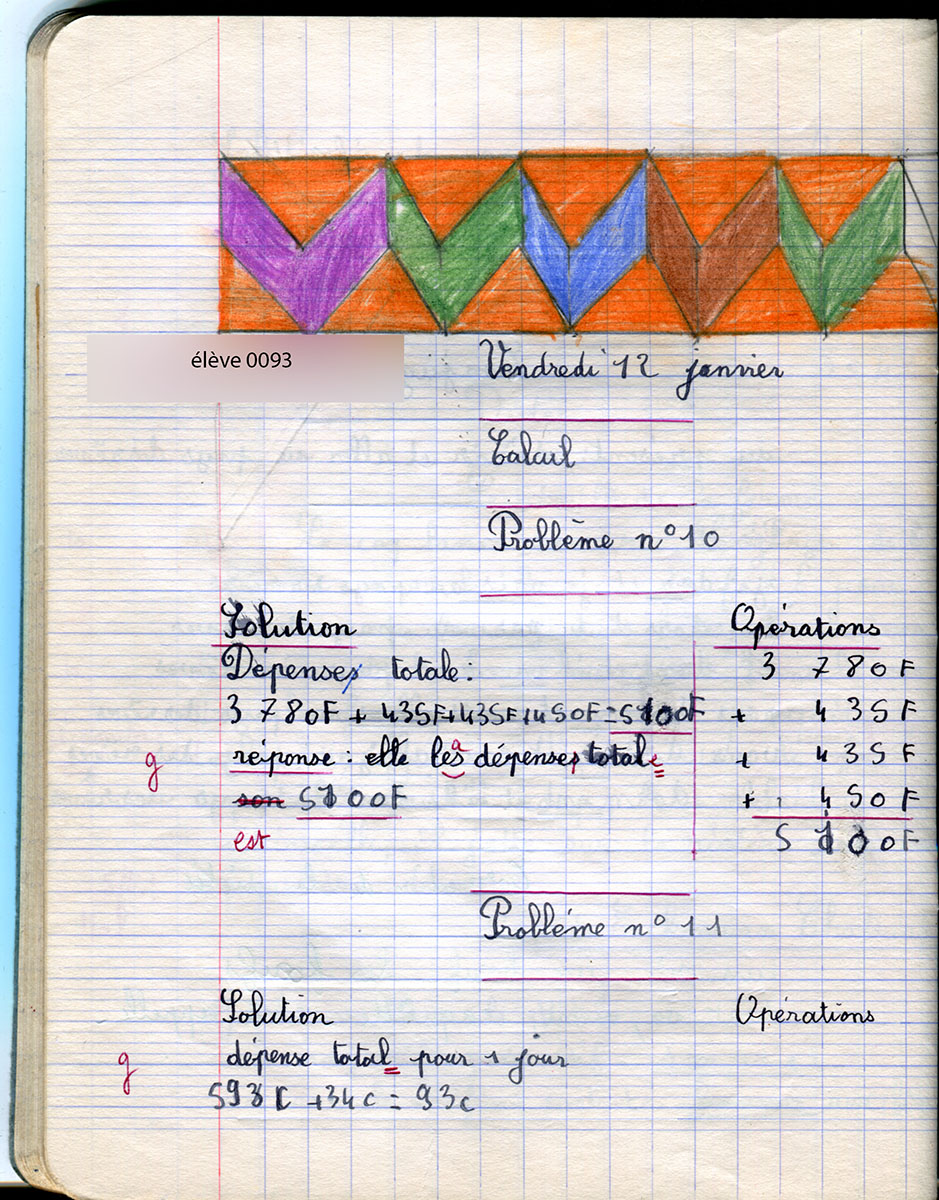 élève 0093
Vendredi 12 janvier
Calcul
Problème n°10
Solution
Opérations
Dépenses totale:
3 780F
3 780F + 435F+435F+450F=5100F
+ 435F
g réponse : elle les a dépenses totale
+ 435F
son 5100F
+ 450F
est
5 100F
Probléme n° 11
Solution
Opérations
g dépense total pour 1 jour
+34c = 93c